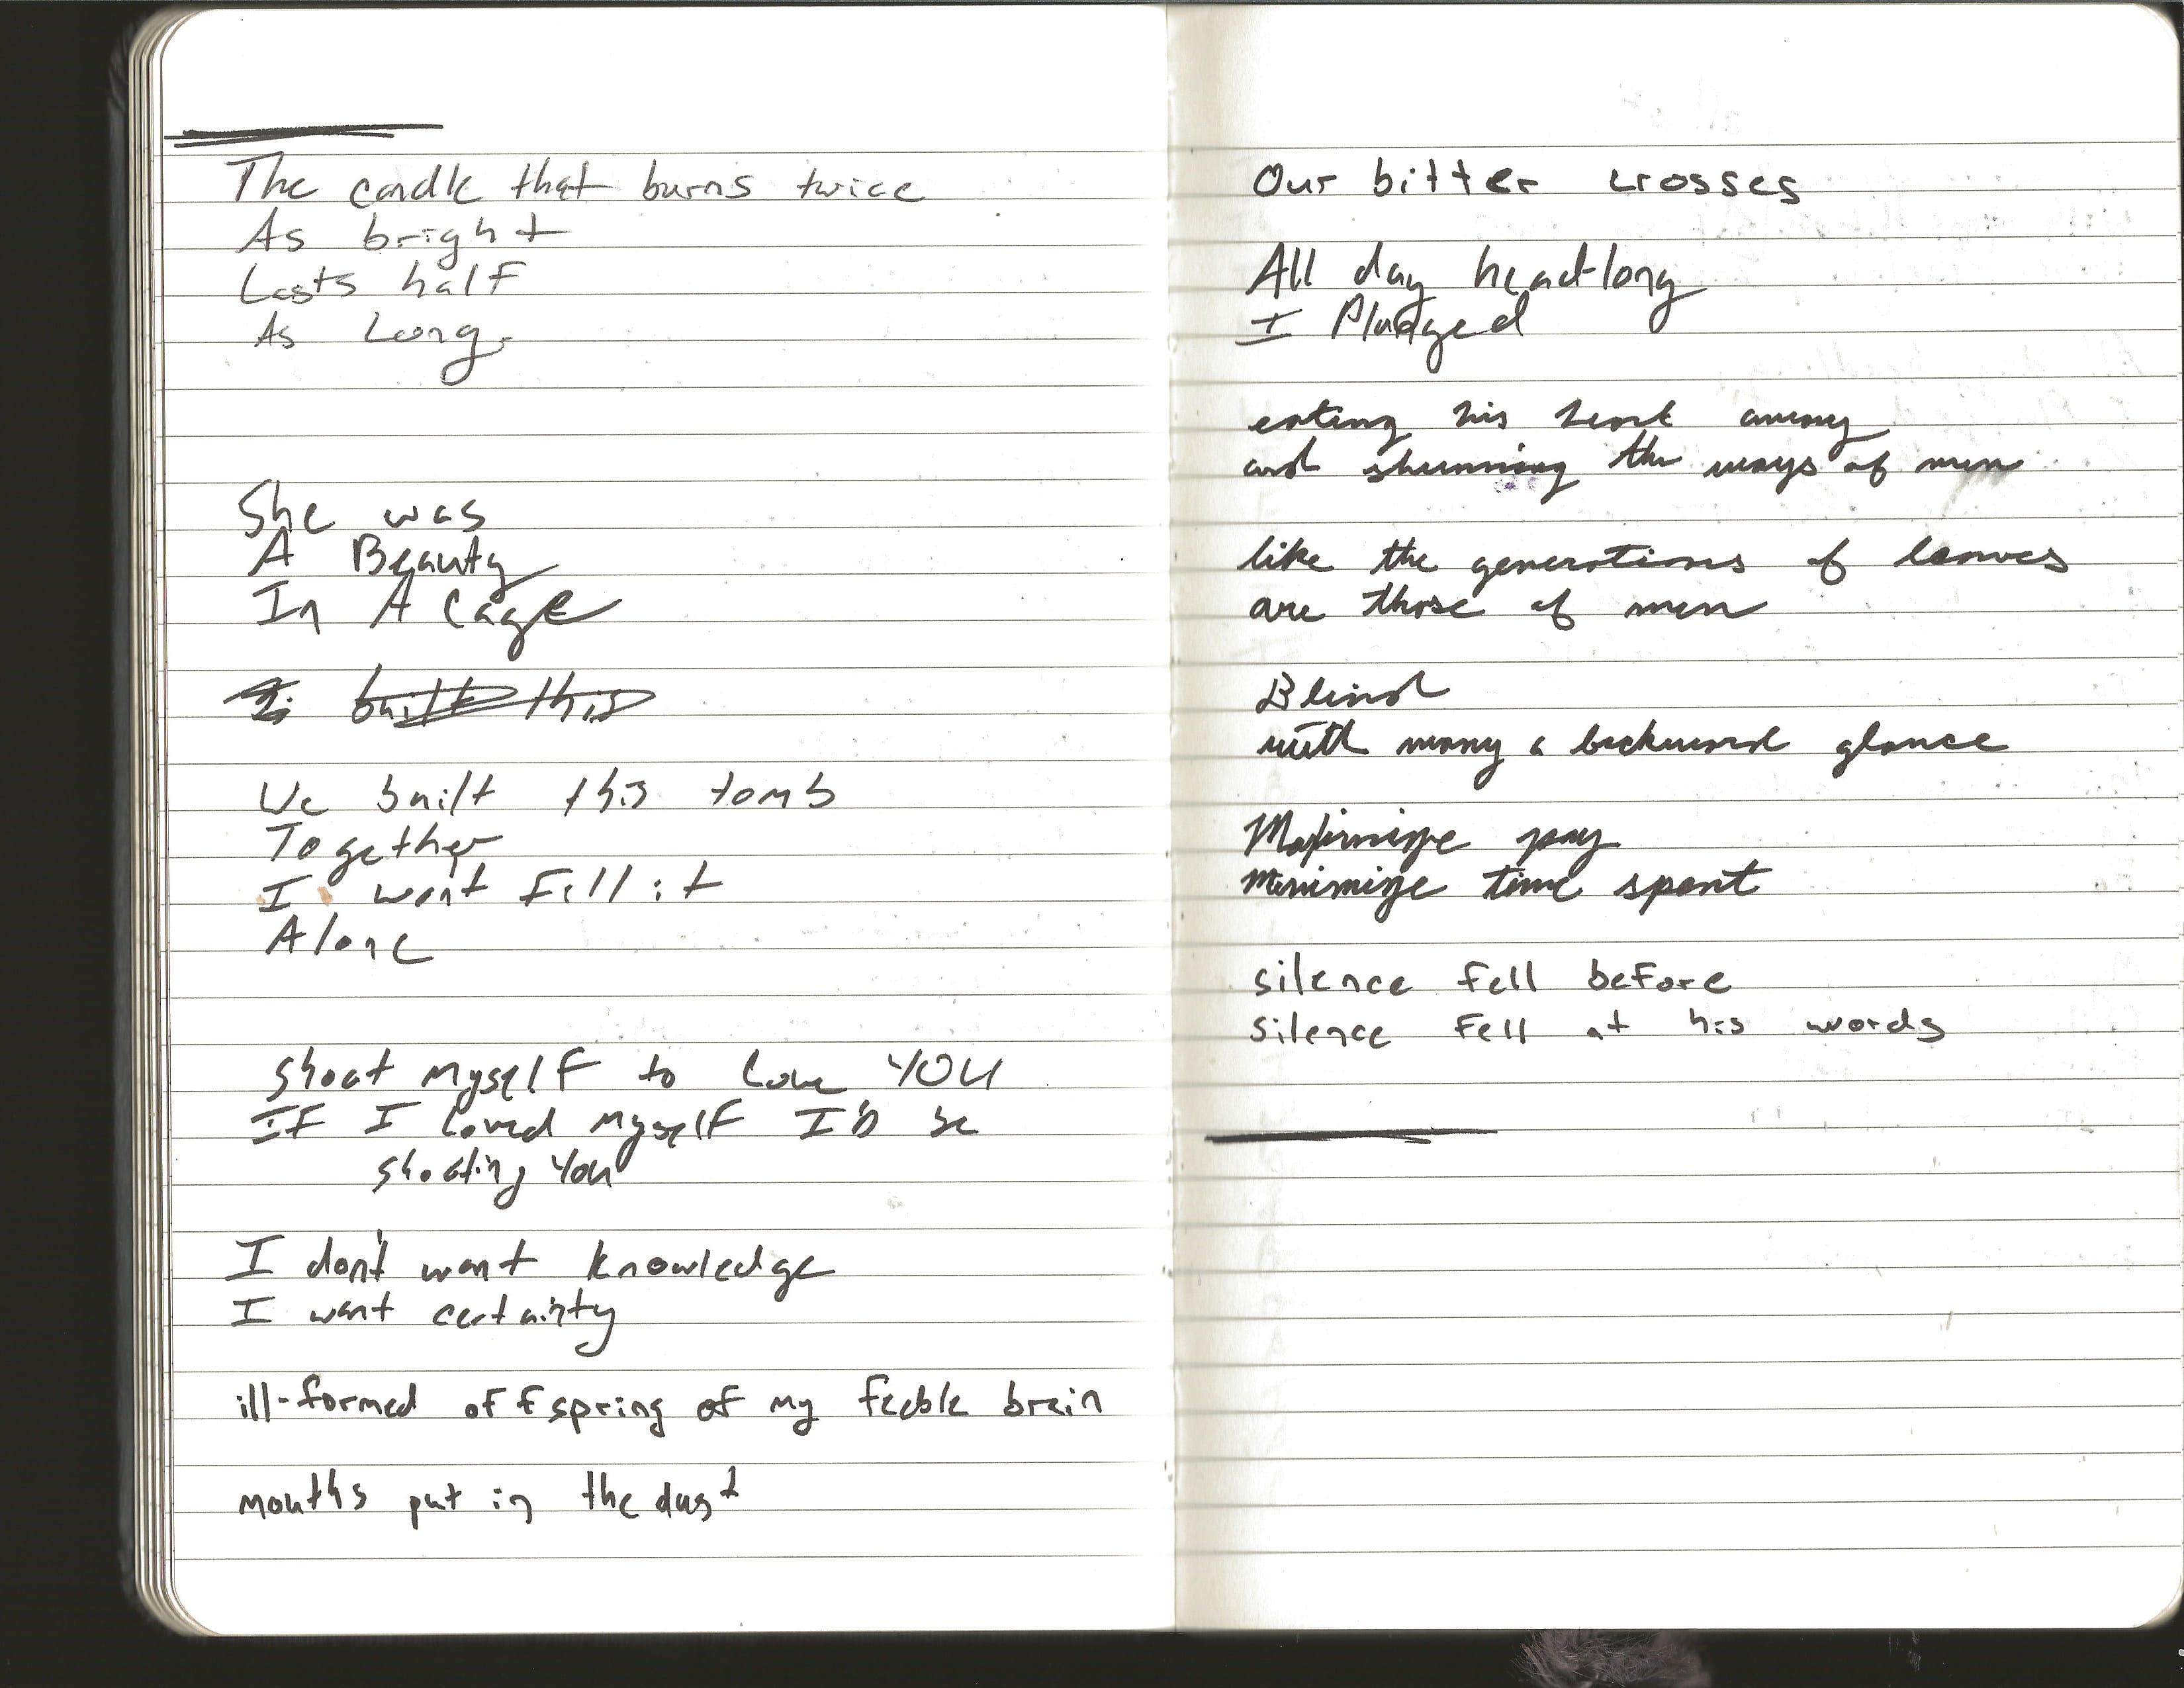 The candle that burns twice
As bright
Lasts half
As Long.
She was
A Beauty
In A Cage
built this
We built this tomb
Together
I wont fill it
Alone
Shoot myself to love YOU
IF I loved myself I'D be
shooting You
I don't want knowledge
I want certainty
ill-formed offspring of my feeble brain
mouths put in the dust
Our bitter crosses
All day headlong
I Pludged
eating his heart away
and shunning the ways of men
like the generations of leaves
are those of men
Blind
with many a backward glance
Maximize pay
Minimize time spent
silence fell before
silence fell at his words